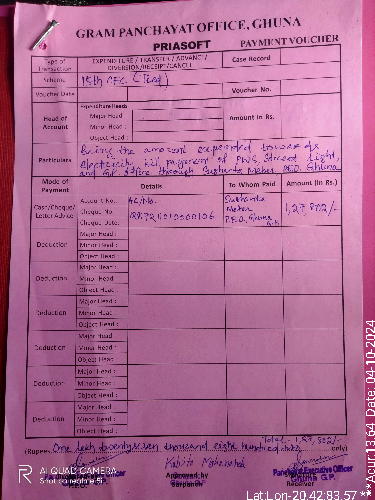 GRAM PANCHAYAT OFFICE, GHUNA
PRIASOFT
PAYMENT VOUCHER
Type of Transaction
EXPENDITURE / TRANSFER / ADVANCE / DIVERSION/RECEIPT/CANCEL
Case Record
Scheme
15th CFC (Tied)
Voucher Date
Voucher No.
Head of Account
Expenditure Heads
Major Head
Minor Head :
Object Head :
Amount in Rs.
Particulars
Being the amount expended towards
electricity bill payment of PWS, Street Light,
and G.P. office through Sushanta Meher PEO. Ghuna
Mode of Payment
Details
To Whom Paid
Amount (In Rs.)
Cash/Cheque/ Letter Advice
Account No.
Cheque No.
Cheque Date:
A/c No.
Meher
P.E.O, Ghuna
G.P.
1,27,802/-
Deduction
Major Head :
Minor Head :
Object Head :
Deduction
Major Head :
Minor Head
Object Head :
Deduction
Major Head :
Minor Head :
Object Head :
Deduction
Major Head
Minor Head :
Object Head
Deduction
Major Head :
Minor Head :
Object Head :
Deduction
Major Head
Minor Head :
Object Head :
Total - 1,27,802/-
(Rupees One lakh twentyseven thousand eight hundred two only)
Approved by
Sarpanch
Panchayat Executive Officer
Ghuna G.P.
AI QUAD CAMERA
Lat Lon-20.42,83.57 ***
***Acur 13.64, Date, 04-10-2024